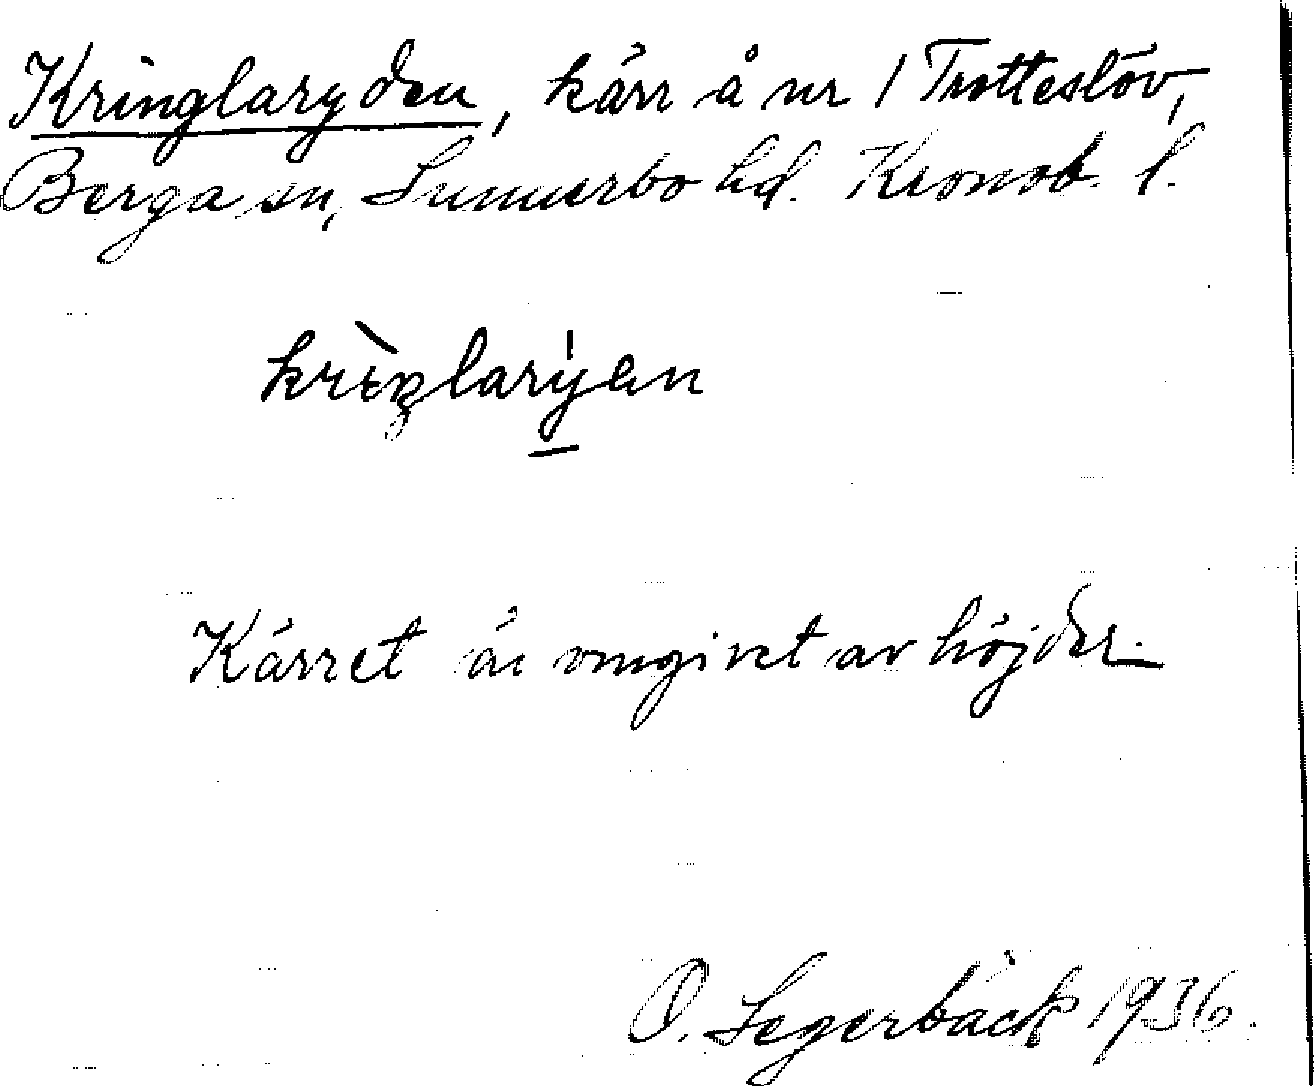 Kringlaryden, kärr å nr 1 Trotteslöv,
Berga sn, Sunnerbo hd. Kronob. l.
krìŋlarýen
Kärret är omgivet av höjder.
O. Segerbäck 1936.